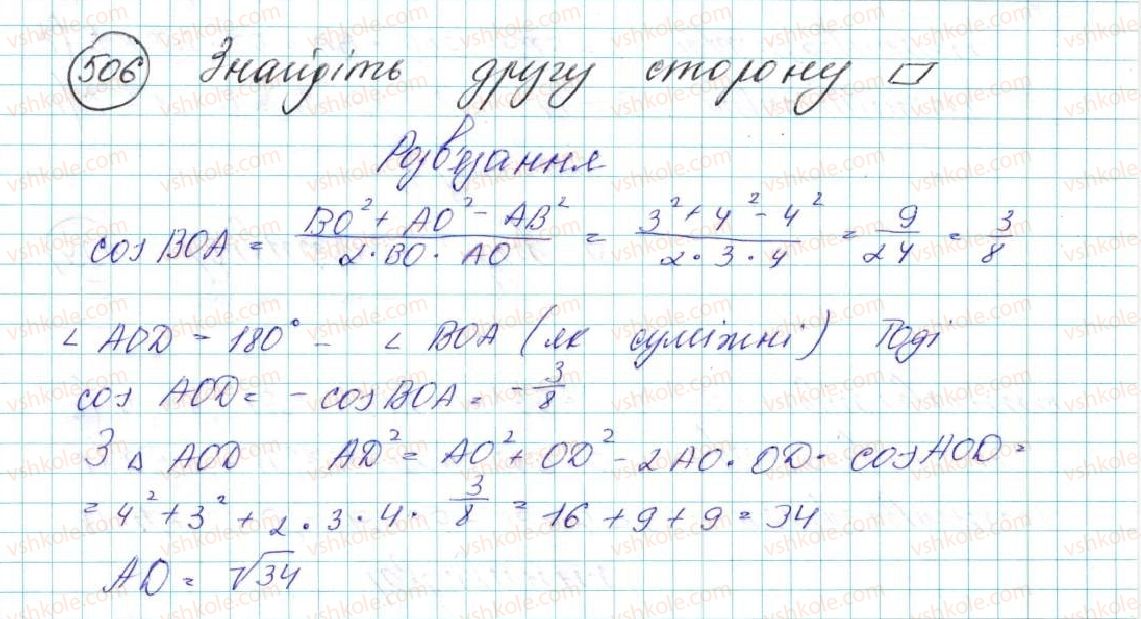 506 Знайдіть другу сторону ▱
Розв'язання
cos BOA = (BO² + AO² - AB²)/(2·BO·AO) = (3² + 4² - 4²)/(2·3·4) = 9/24 = 3/8
∠ AOD = 180° - ∠ BOA (як суміжні) Тоді
cos AOD = - cos BOA = -3/8
З Δ AOD AD² = AO² + OD² - 2AO·OD·cos AOD =
= 4² + 3² + 2·3·4·3/8 = 16 + 9 + 9 = 34
AD = √34
vshkole.com